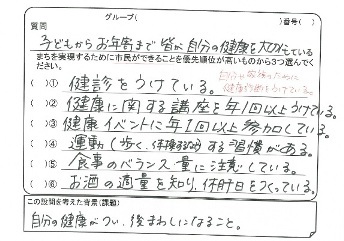 グループ(　　)　　番号(　　)
質問
子どもからお年寄まで皆が自分の健康を大切にしている
まちを実現するために市民ができることを優先順位が高いものから3つ選んでく
ださい。
(　)① 健診をうけている。
(　)② 健康に関する講座を年1回以上うけている。
(　)③ 健康イベントに年1回以上参加している。
(　)④ 運動(歩く、体操など)する習慣がある。
(　)⑤ 食事のバランス・量に注意している。
(　)⑥ お酒の適量を知り、休肝日をつくっている。
この設問を考えた背景(課題)
自分の健康がつい、後まわしになること。